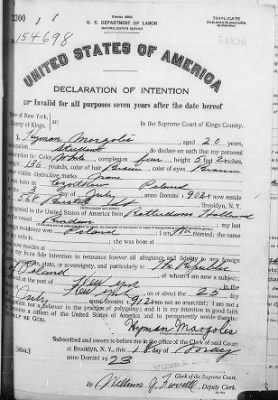 2300
Form 2203
TRIPLICATE
U. S. DEPARTMENT OF LABOR
NATURALIZATION SERVICE
154698
UNITED STATES OF AMERICA
DECLARATION OF INTENTION
Invalid for all purposes seven years after the date hereof
of New York,
In the Supreme Court of Kings County.
nty of Kings
ss:
I, Hyman Margolis aged 20 years,
occupation Student, do declare on oath that my personal
description is: Color White, complexion fair, height 5 feet 2 inches,
weight 130 pounds, color of hair Brown, color of eyes Brown
other visible distinctive marks None
Poland
on the 3 day of July, anno Domini 1902; now reside
at 568, Brooklyn, N. Y.
to the United States of America from Rotterdam Holland
on the vessel; my last
foreign residence was Poland; I am not married; the name
; she was born at
now resides at
It is my bona fide intention to renounce forever all allegiance and fidelity to any foreign
prince, potentate, state, or sovereignty, and particularly to The Republic
of Poland, of whom I am now a subject;
New York
New York on or about the 25 day
July, anno Domini 1912; I am not an anarchist; I am not a
polygamist nor a believer in the practice of polygamy; and it is my intention in good faith
to become a citizen of the United States of America and to permanently reside therein:
HELP ME GOD.
Hyman Margoles
Subscribed and sworn to before me in the office of the Clerk of said Court
[SEAL]
at Brooklyn, N. Y., this 18 day of May
anno Domini 1923
Clerk of the Supreme Court.
By William J. Farrell, Deputy Clerk.